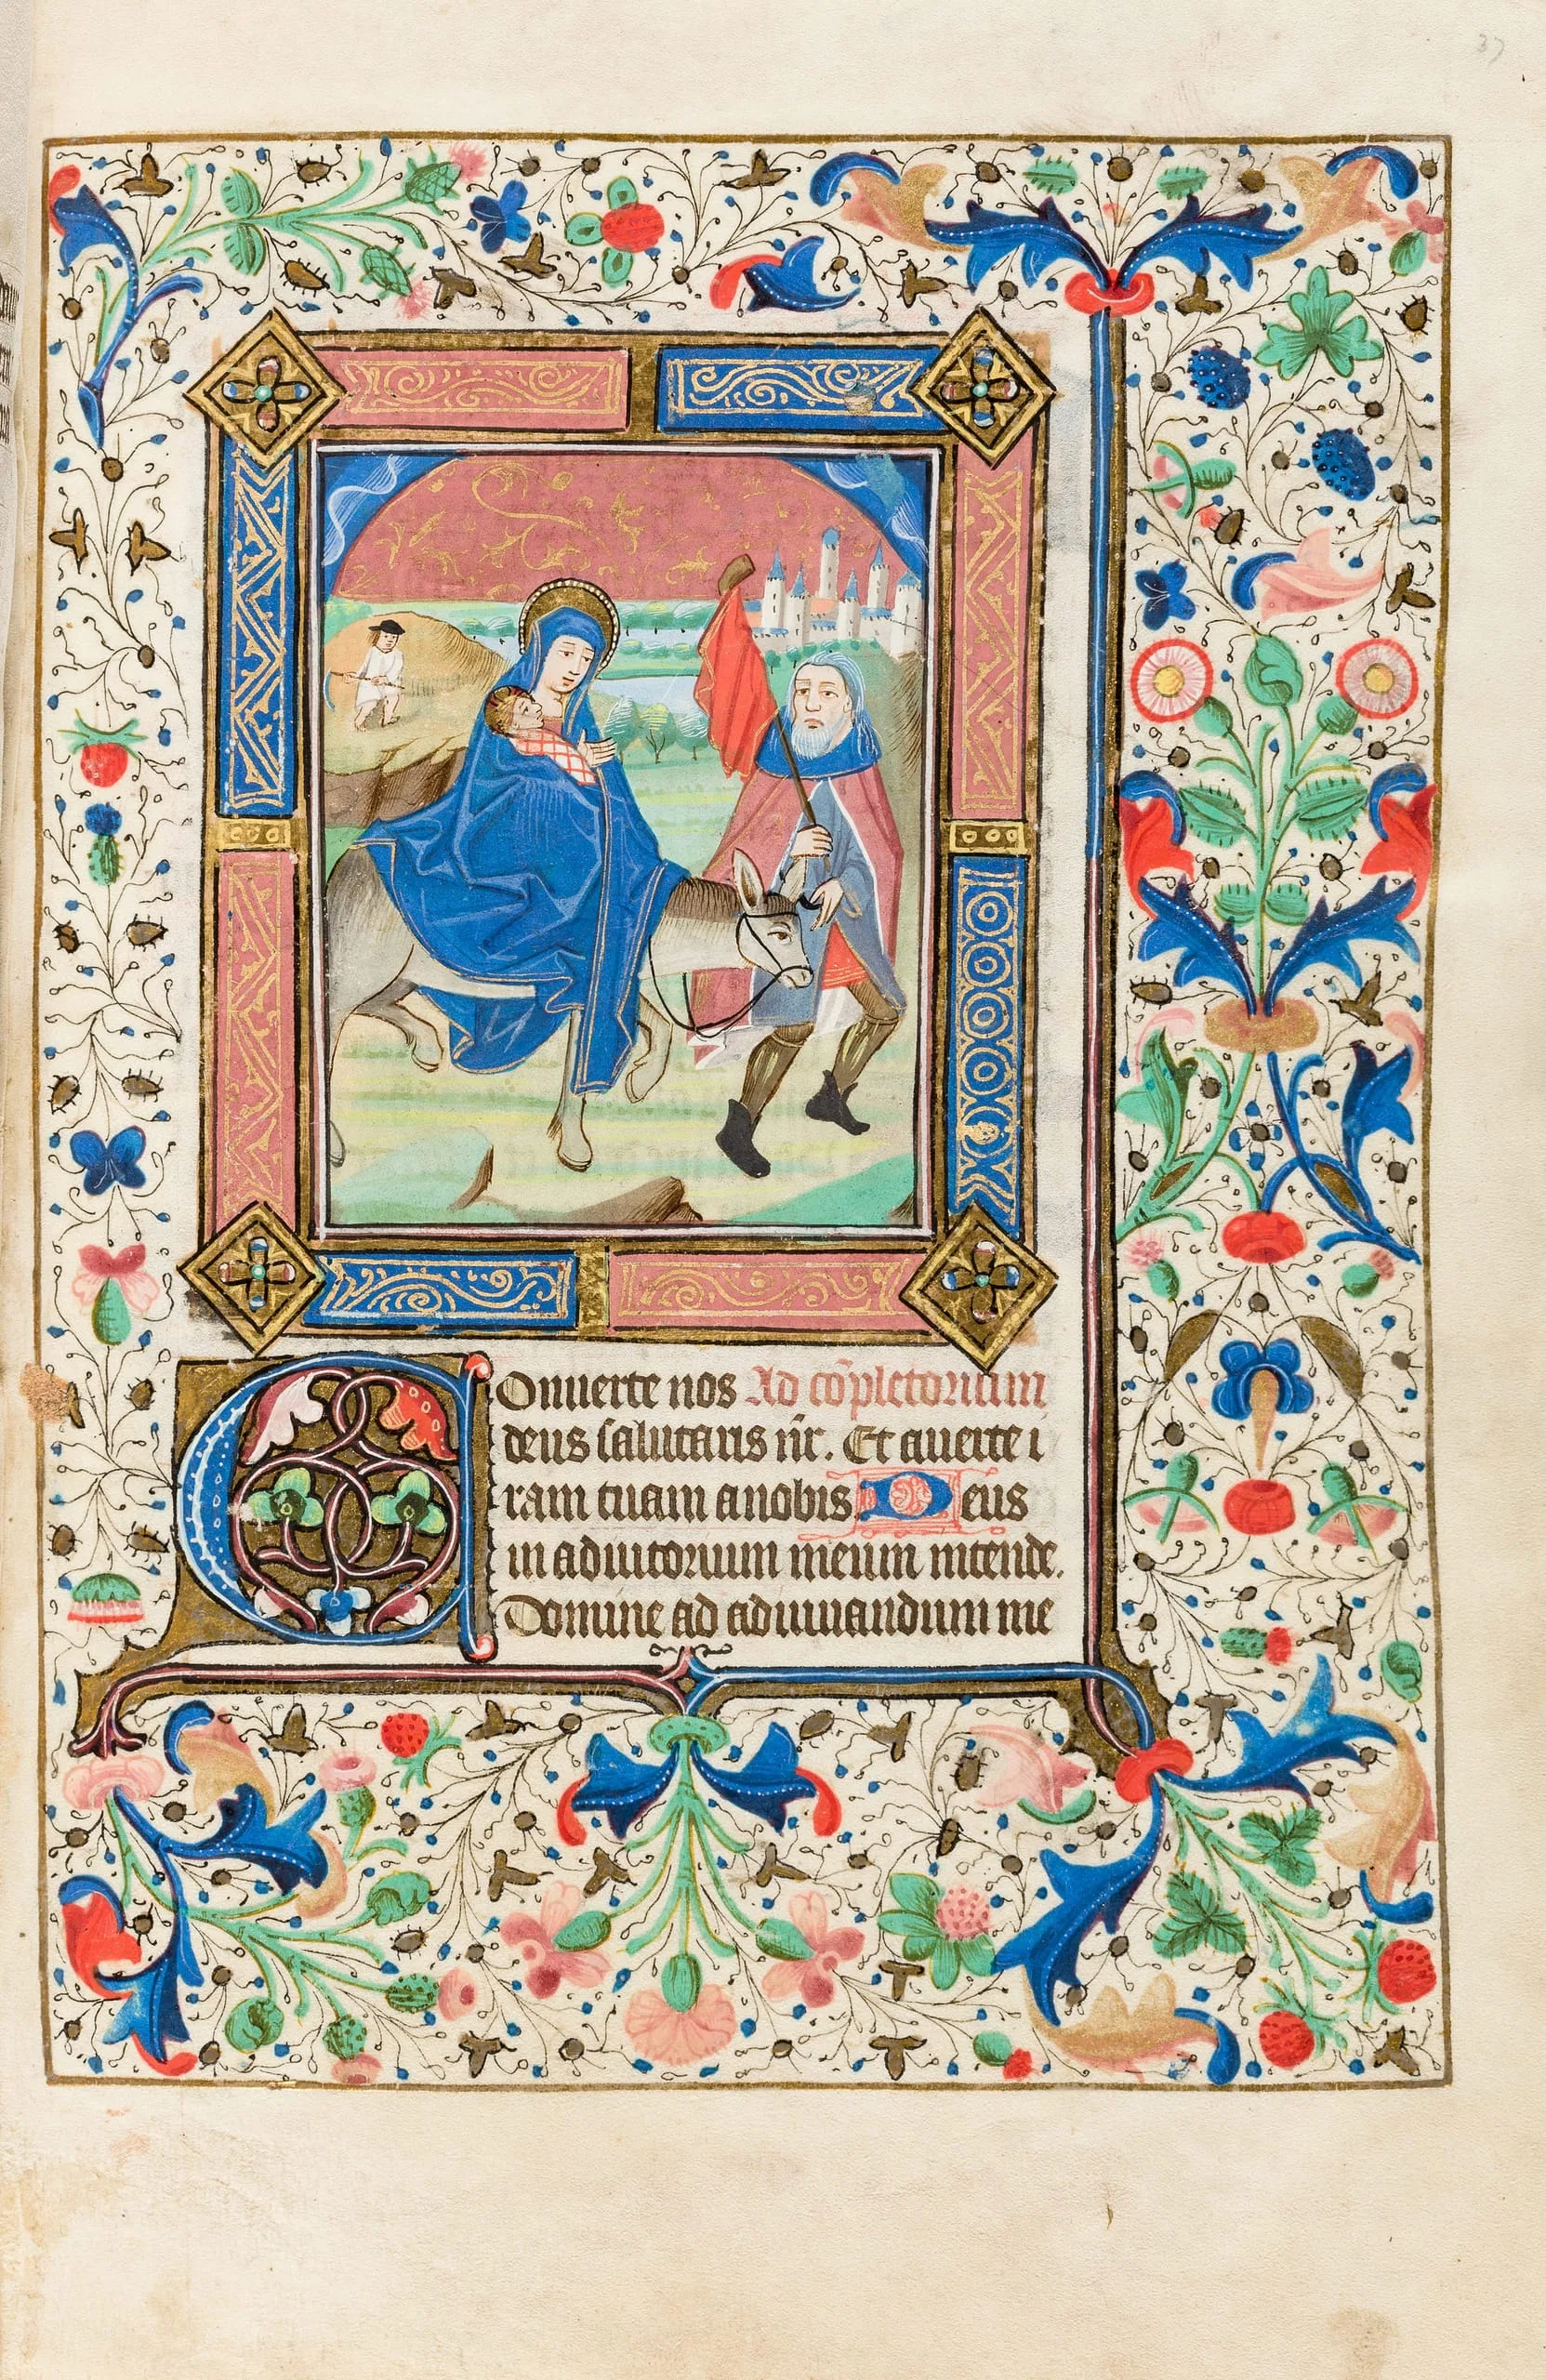 37
Conuerte nos Ad cōpletorium
deus salutaris nr̄. Et auerte i
ram tuam anobis Deus
in adiutorium meum intende.
Domine ad adiuuandum me